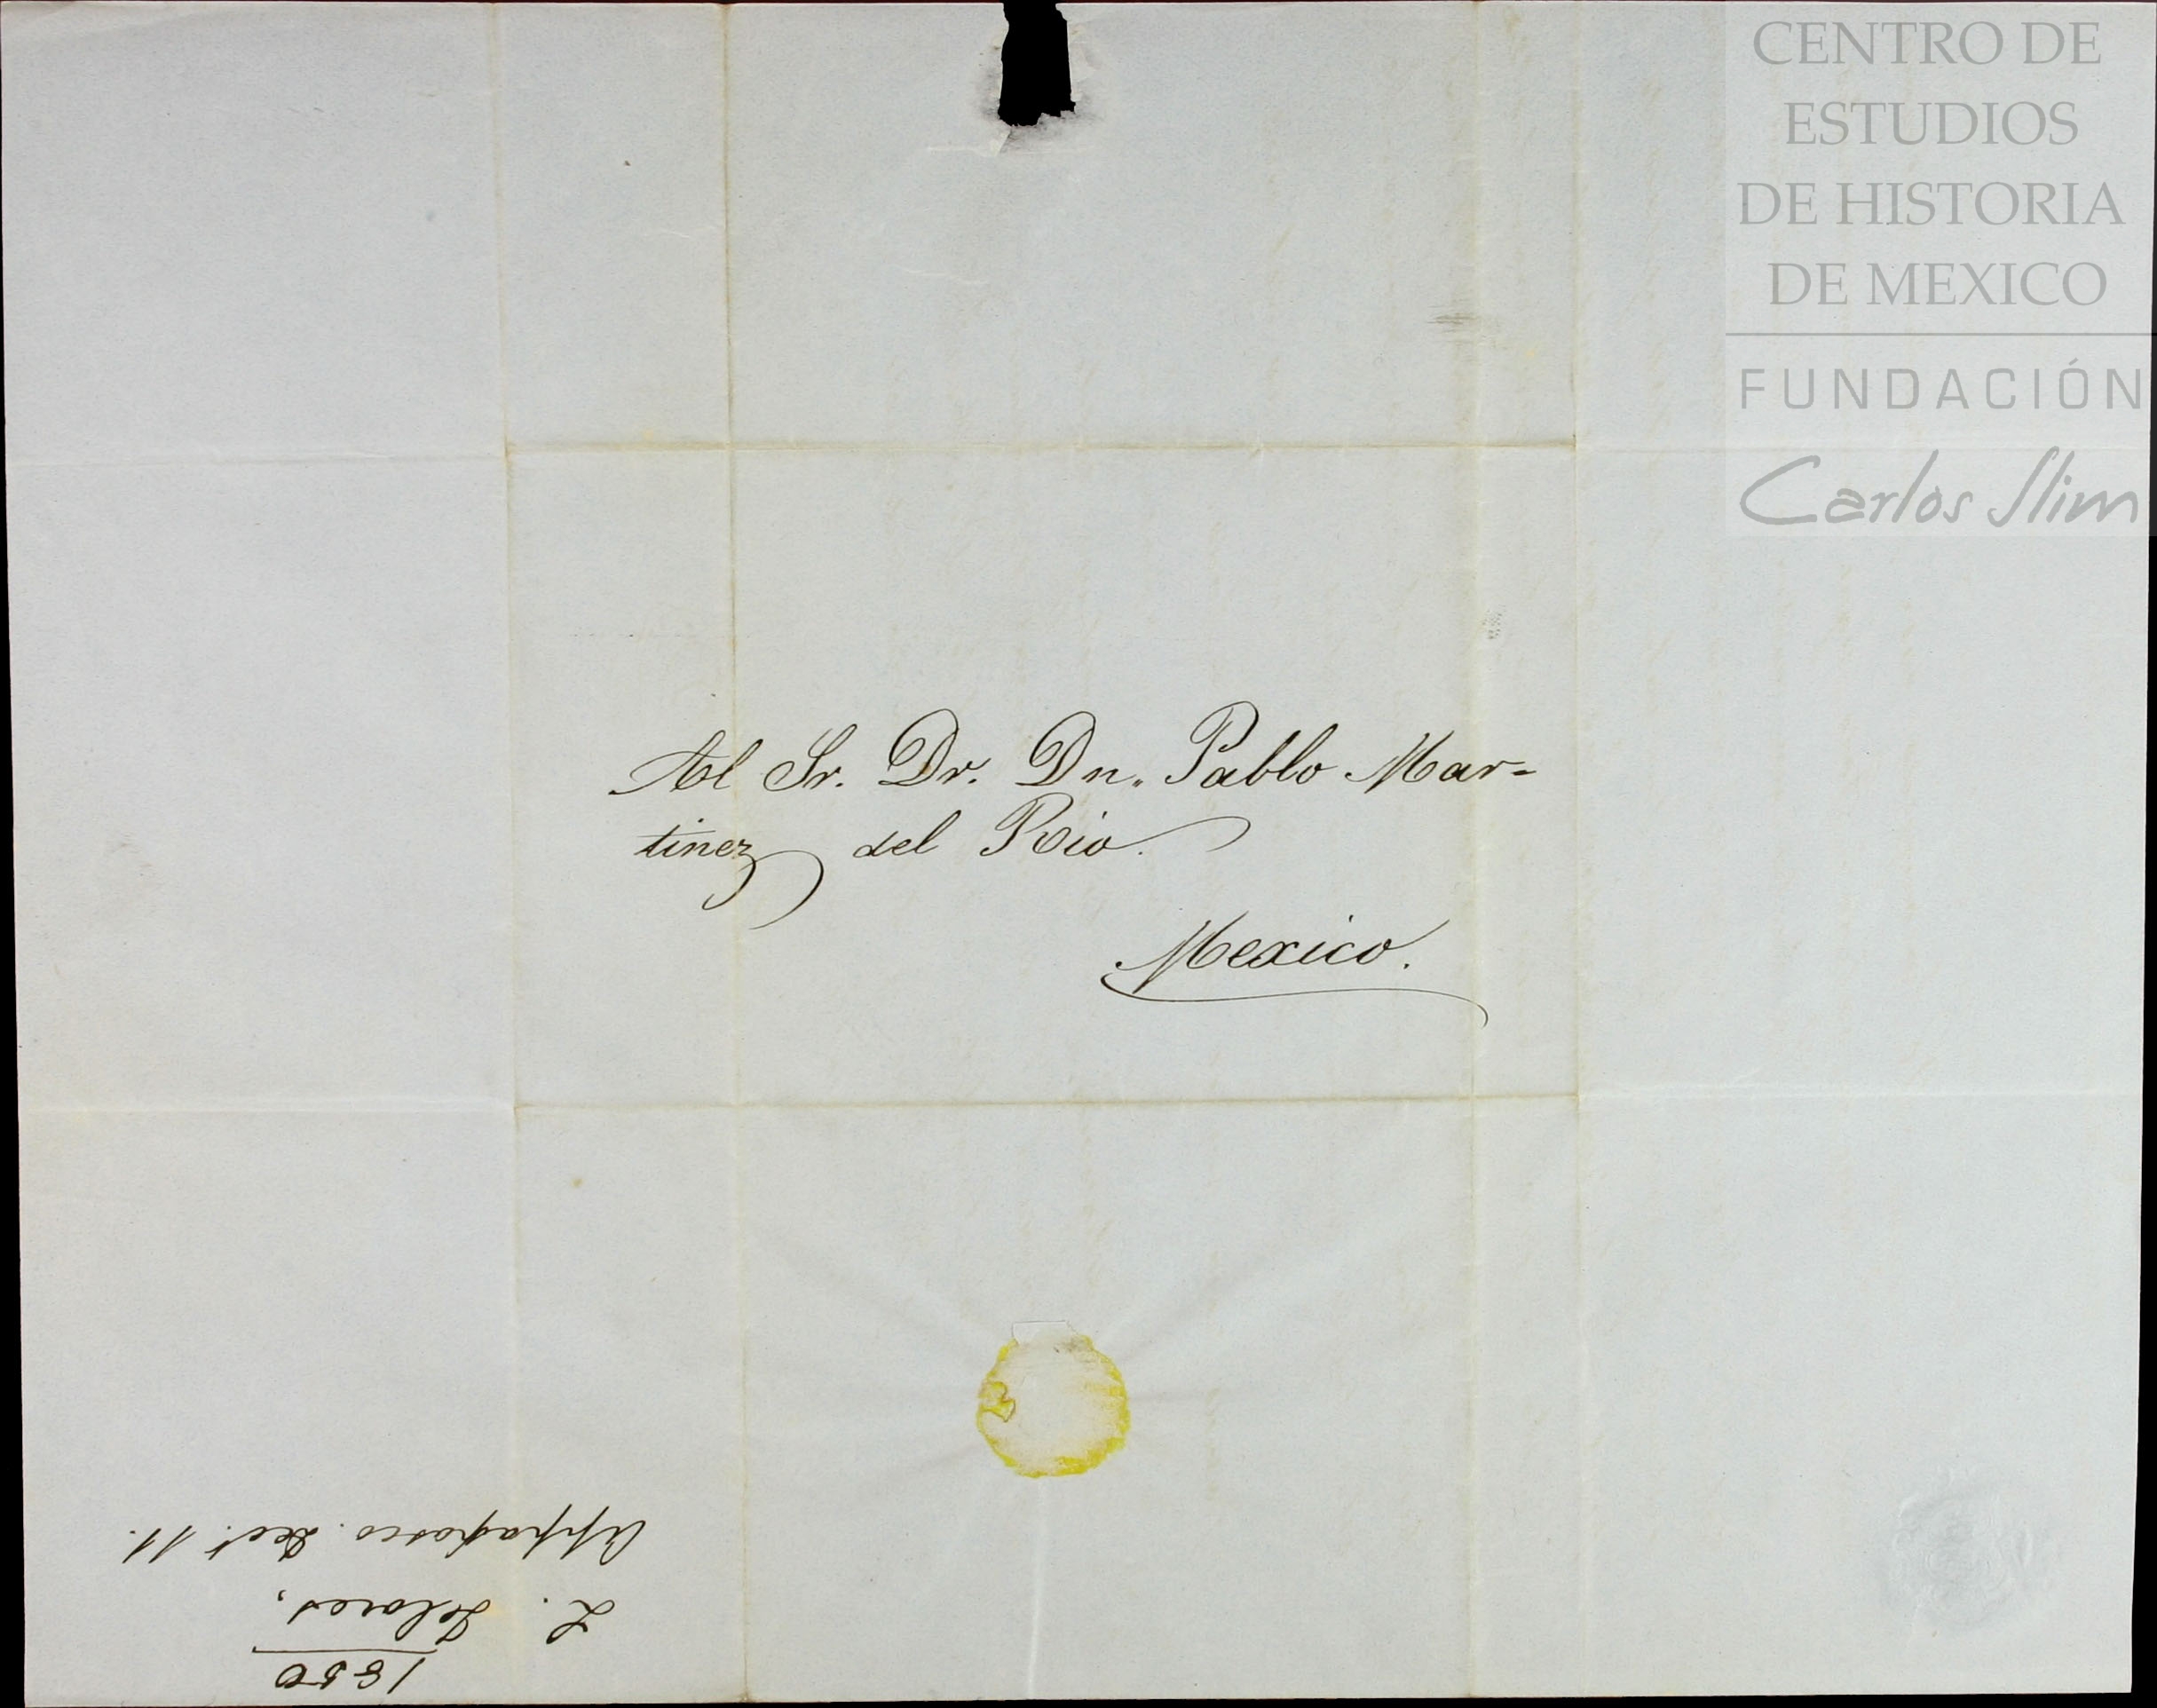 CENTRO DE
ESTUDIOS
DE HISTORIA
DE MEXICO
FUNDACIÓN
Carlos Slim
Al Sr. Dr. Dn. Pablo Mar-
tinez del Rio.
Mexico.
1850
L. Jelares,
Dec. 11.